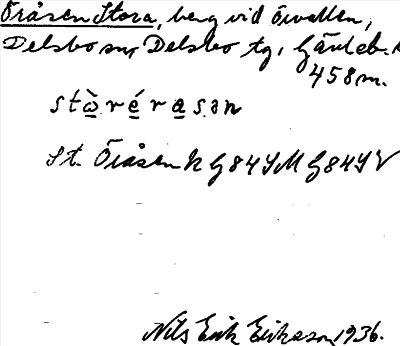 Öråsen Stora, berg vid Örvallen,
Delsbo sn, Delsbo tg, Gävleb. l
458m.
stò̱ré̱ra̱sən
St. Öråsen K G84SM G84SV
Nils Erik Erikson 1936.